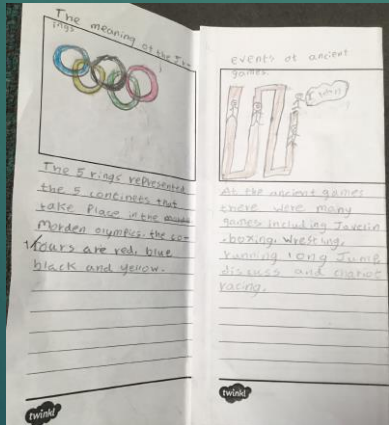 The meaning of the
ings
The 5 rings represented
the 5 contineets that
take place in the
Morden olympics. the co-
lours are red, blue
black and yellow.
twinkl
events of ancient
games.
I win!
At the ancient games
there were many
games including Javelin
,boxing, wrestling,
running long Jump
discuss and chariot
racing.
twinkl